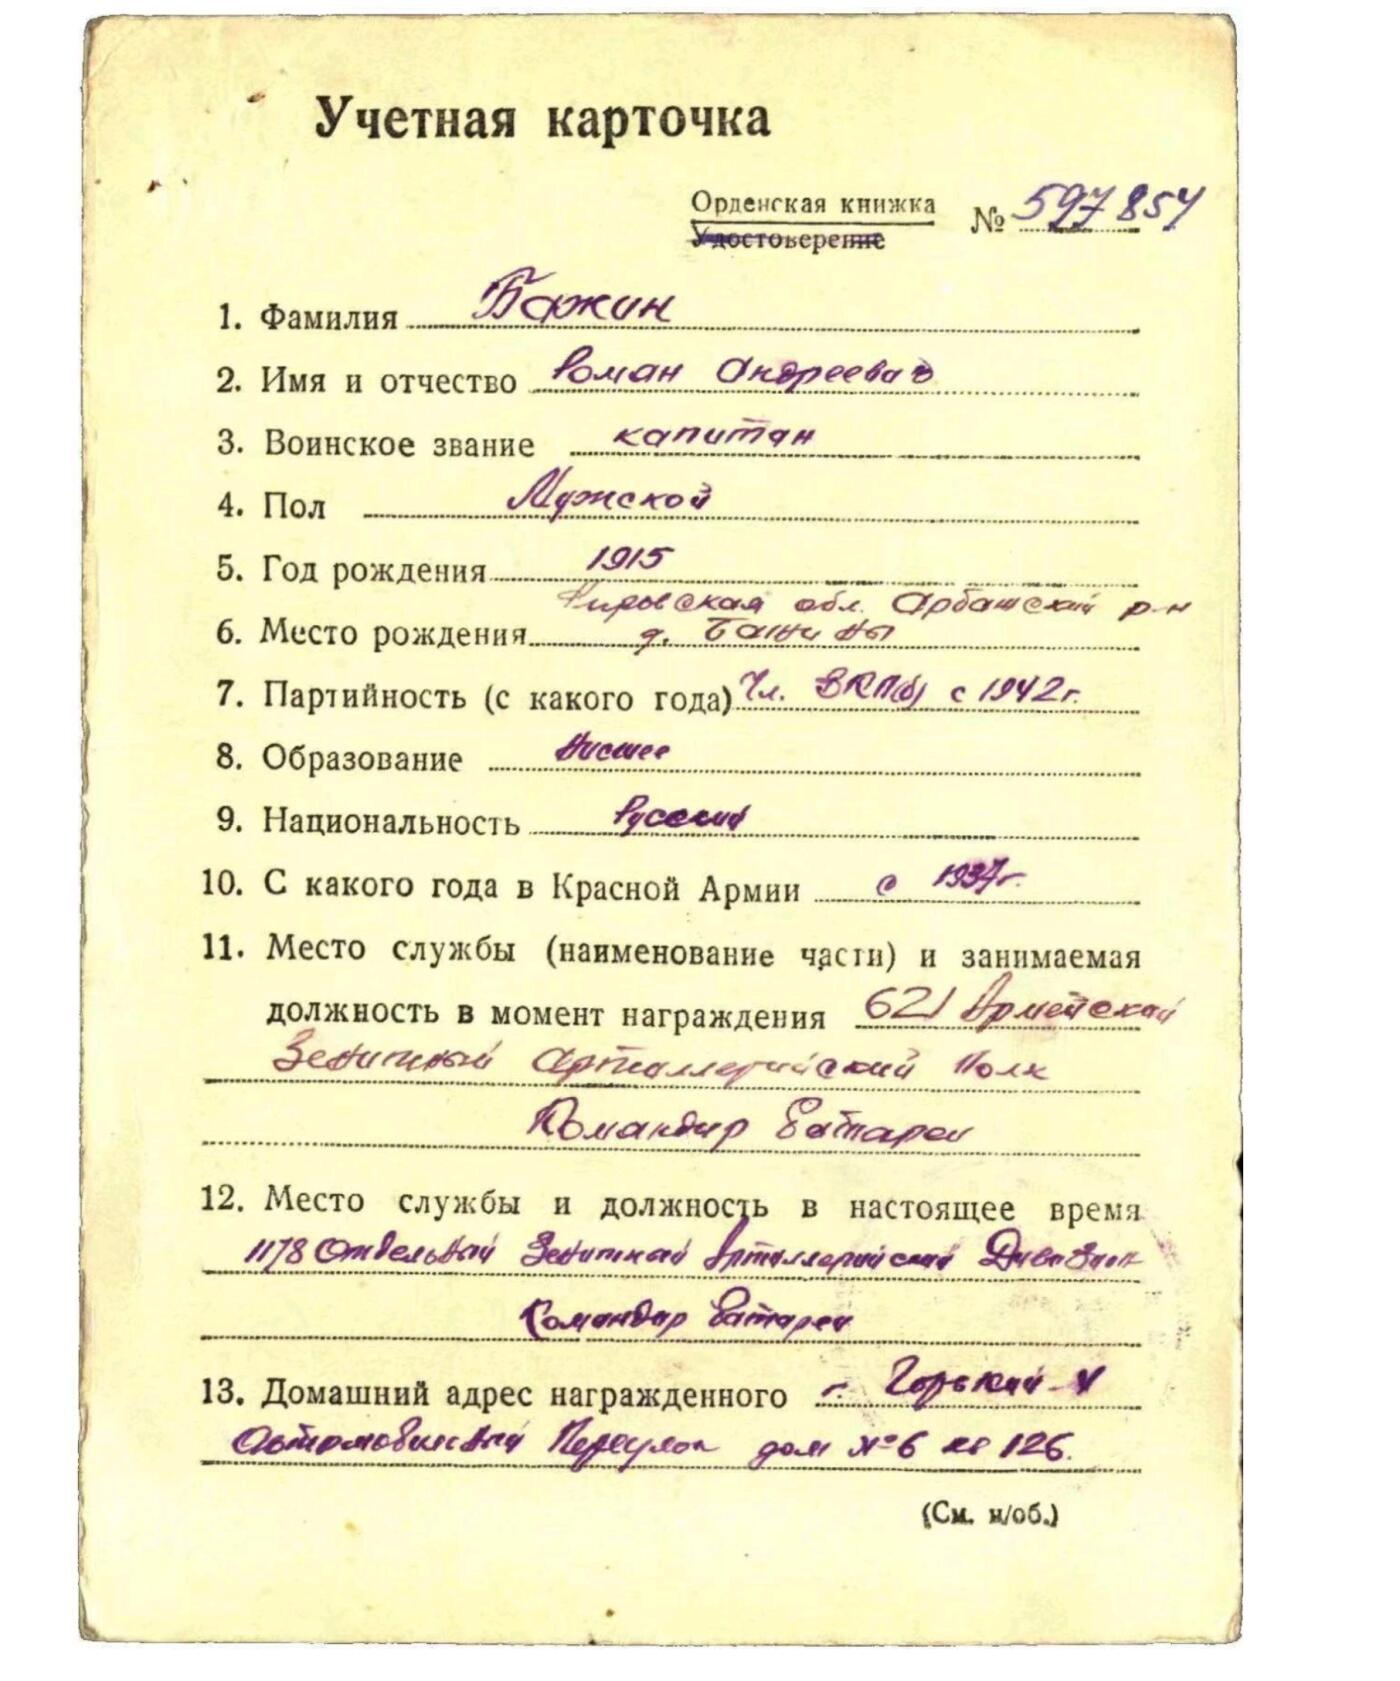 Учетная карточка
Орденская книжка № 597854
Удостоверение
1. Фамилия Бажин
2. Имя и отчество Роман Андреевич
3. Воинское звание капитан
4. Пол Мужской
5. Год рождения 1915
Кировская обл. Арбашский р-н
6. Место рождения д. Бажины
7. Партийность (с какого года) Чл. ВКП(б) с 1942 г.
8. Образование
9. Национальность Русский
10. С какого года в Красной Армии с 1937 г.
11. Место службы (наименование части) и занимаемая
должность в момент награждения 621 Армейский
Зенитный Артиллерийский Полк
Командир Батареи
12. Место службы и должность в настоящее время
1178 Отдельный Зенитный Артиллерийский Дивизион
Командир Батареи
13. Домашний адрес награжденного г. Горький
Автомобильный Переулок дом № 6 кв 126.
(См. н/об.)